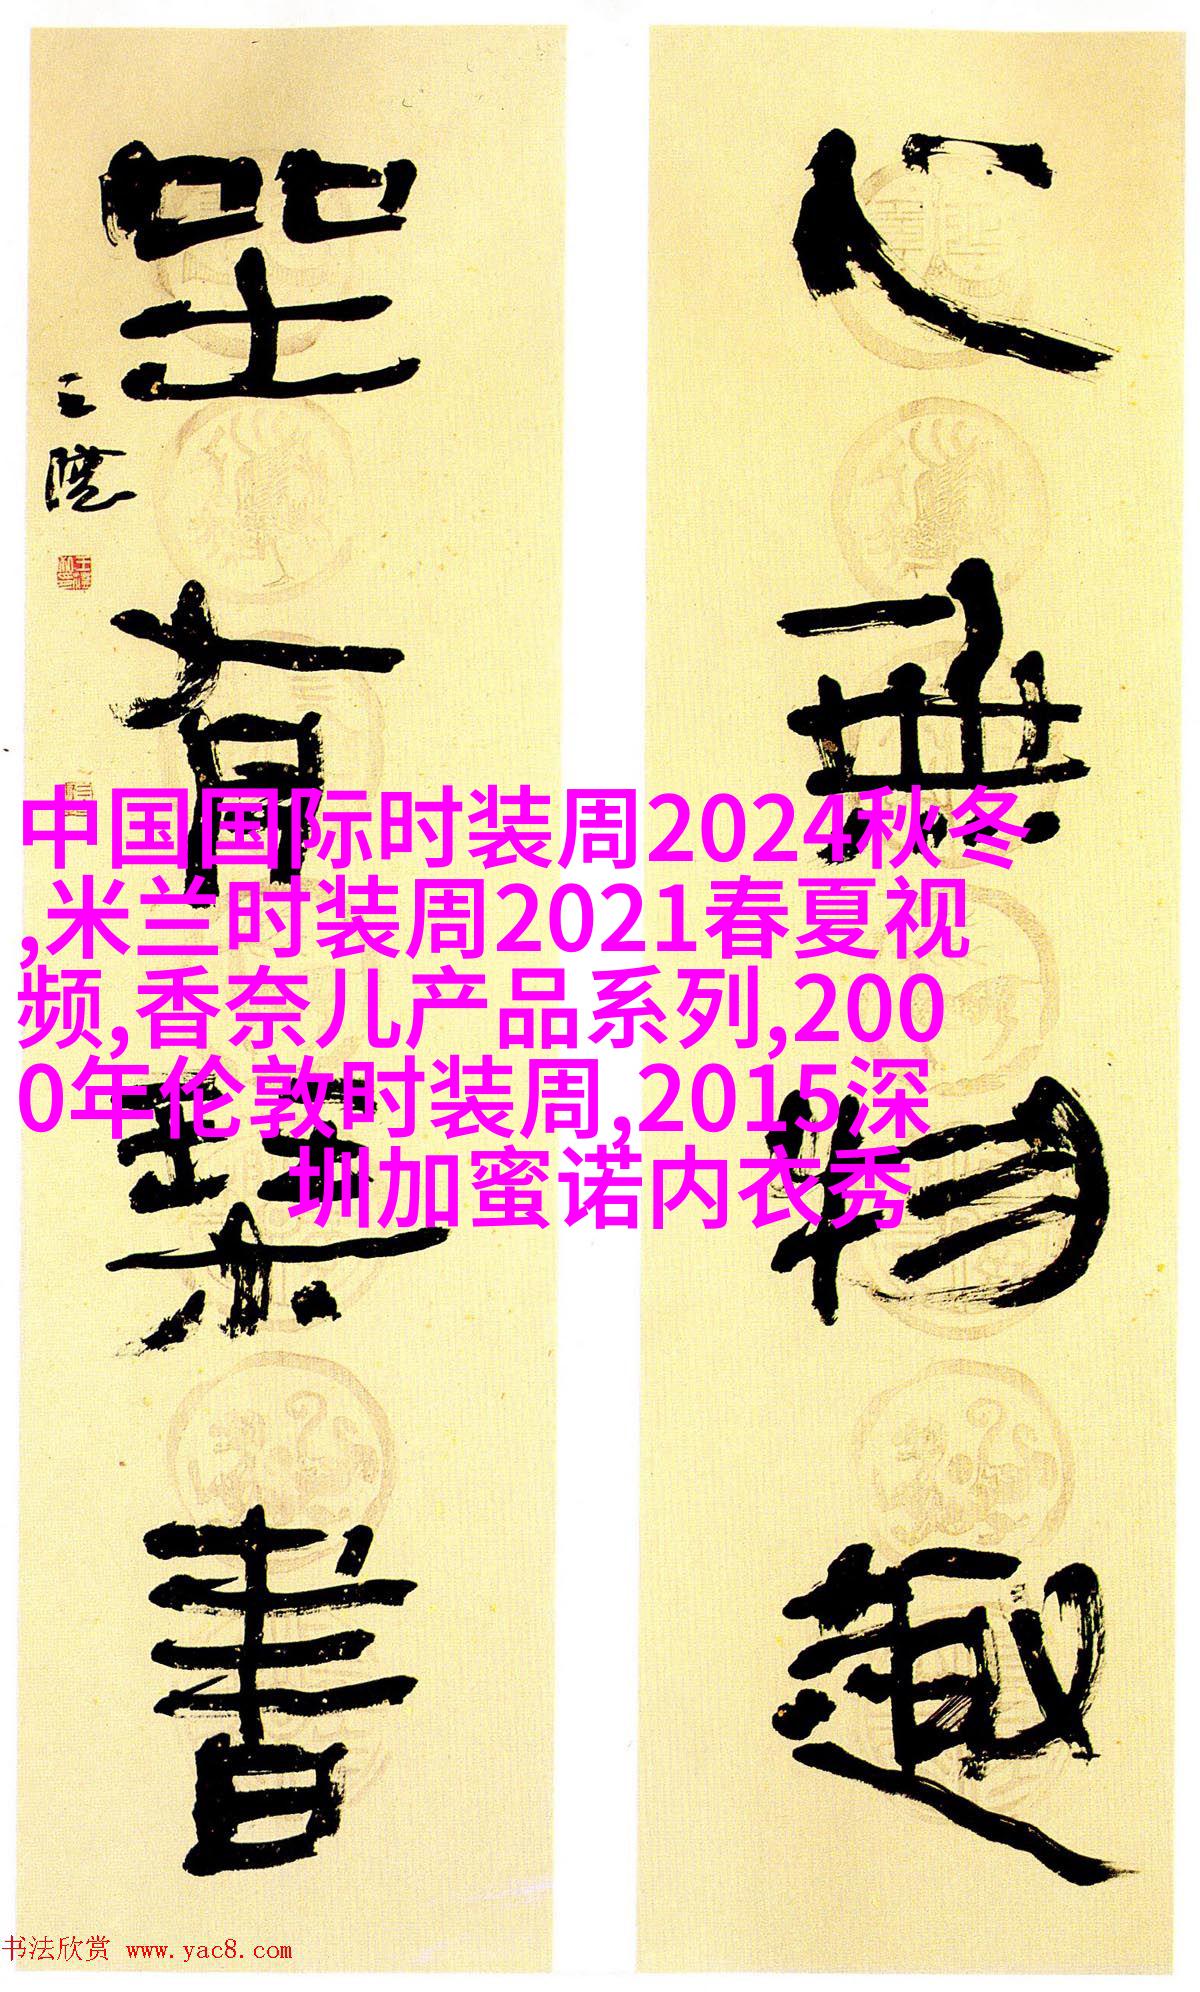 心無物趣
坐有琴書
王鏞
中国国际时装周2024秋冬
,米兰时装周2021春夏视
频,香奈儿产品系列,200
0年伦敦时装周,2015深
圳加蜜诺内衣秀
书法欣赏 www.yac8.com